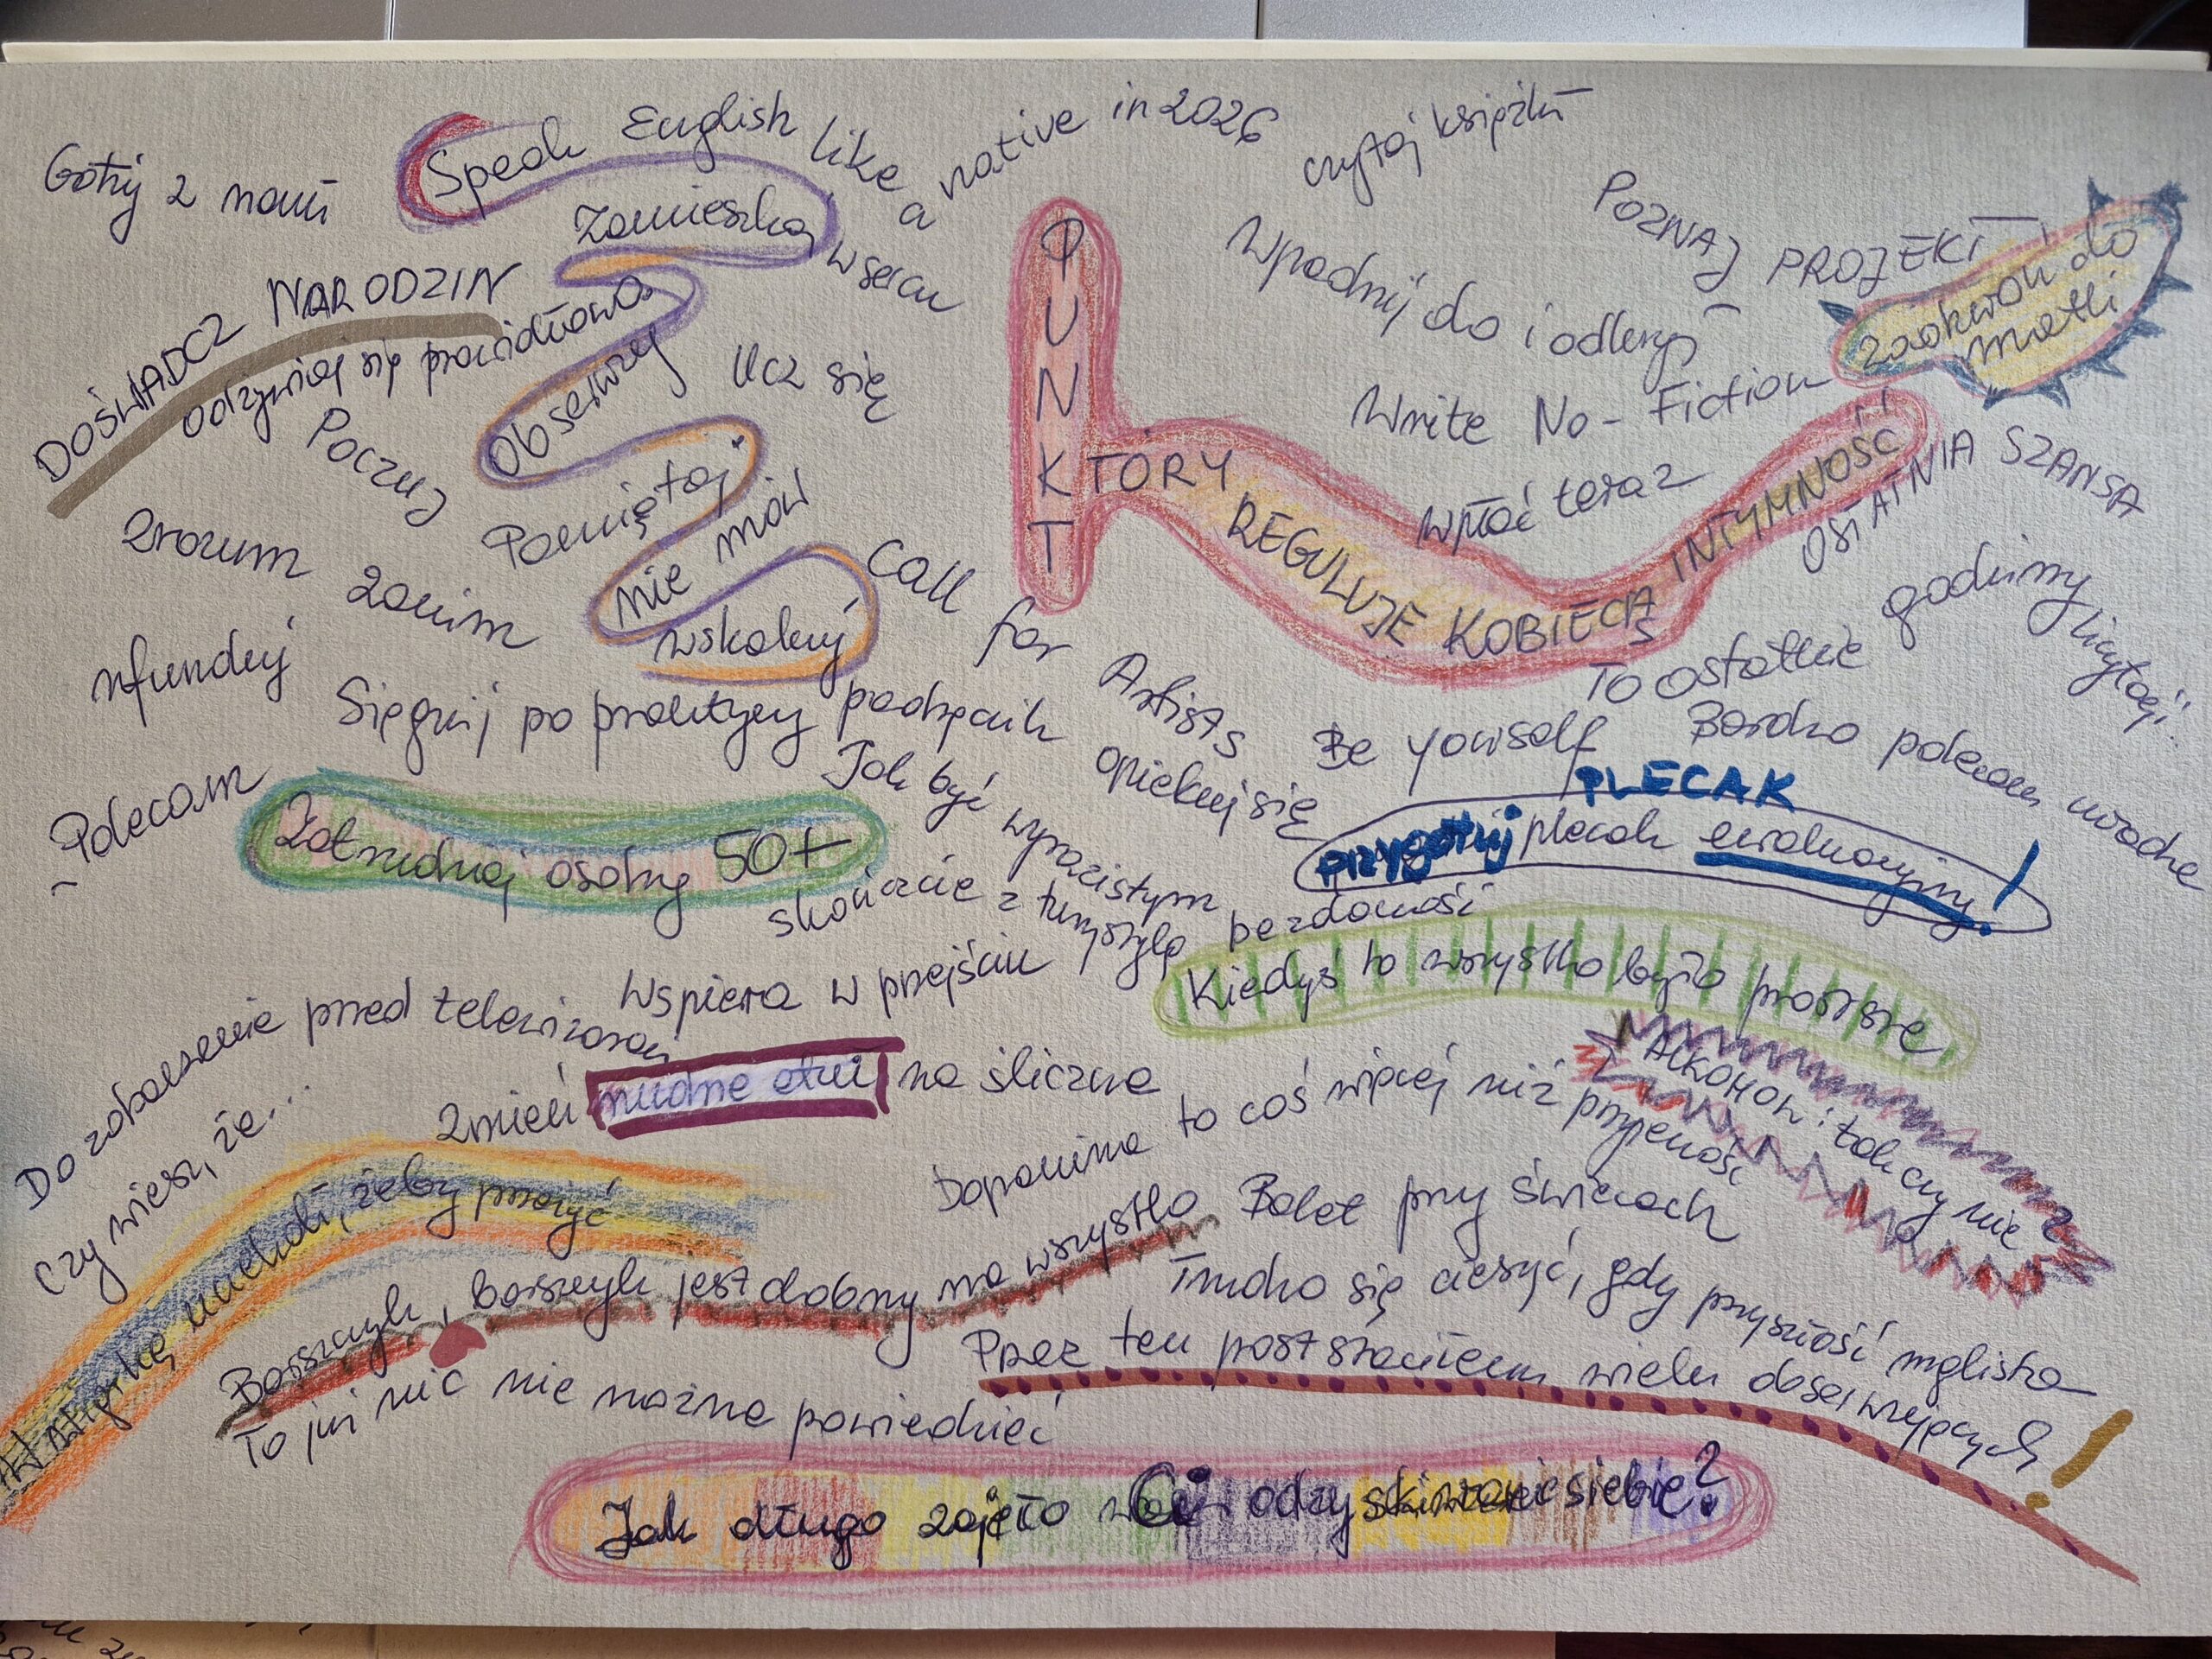 Gotuj z nami
Speak English like a native in 2026
czytaj książki
Zamieszkaj w sercu
POZNAJ PROJEKT
zaakwon do matki
DOŚWIADCZ NARODZIN
odżywiaj się prawidłowo
Obserwuj
Ucz się
Wpadnij do i odleruj
PUNKT
KTÓRY REGULUJE KOBIECĄ INTYMNOŚĆ
Write No-Fiction
Poczuj
Pamiętaj
nie mów
wskakuj
wpłać teraz
OSTATNIA SZANSA
zrozum zanim
Call for Artists
ufunduj
Sięgnij po praktyczny podręcznik
To ostatnie godziny licytacji!
Be yourself
Bardzo polecam uwadze
Polecam
Zatrudniaj osoby 50+
Jak być wyrazistym
opiekuj się
PLECAK
przygotuj plecak ewakuacyjny!
skończcie z turystyką bezdomności
Kiedyś to wszystko było prostsze
Wspiera w przejściu
Do zobaczenia przed telewizorami
Czy wiesz, że...
Zmień nudne etui na śliczne
Dopamina to coś więcej niż przyjemność
ALKOHOL: tak czy nie?
uchodź, żeby przeżyć
Balet przy świecach
Barszczyk, barszczyk jest dobry na wszystko
Trudno się cieszyć, gdy przyszłość mglista
To już nic nie można powiedzieć
Przez ten post straciłem wielu obserwujących!
Jak długo zajęło Ci odzyskiwanie siebie?